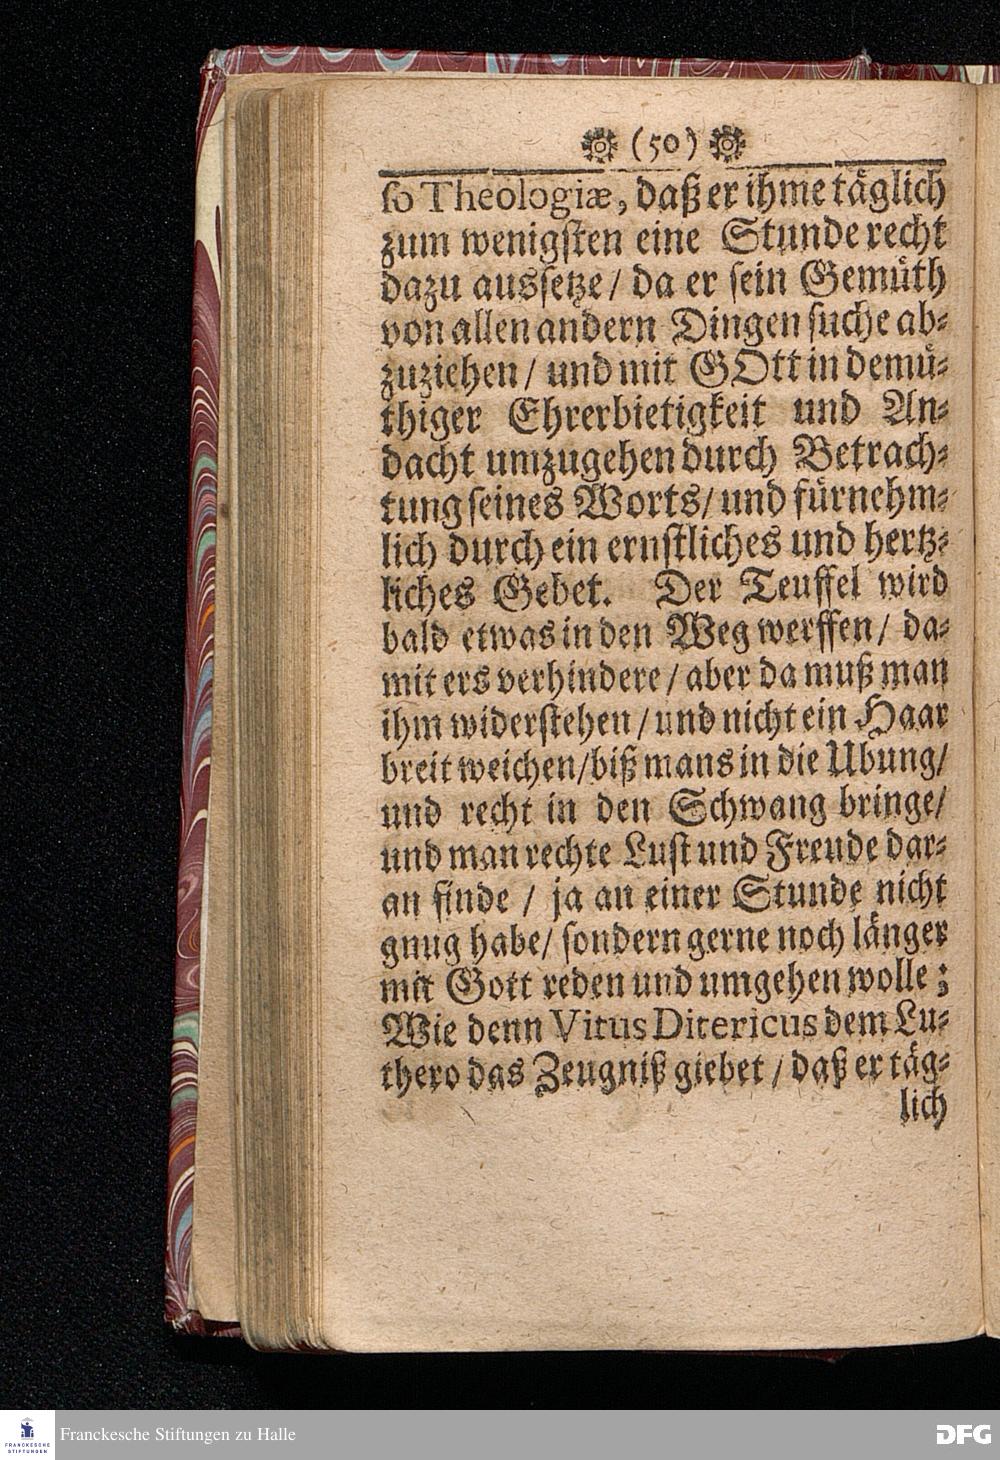 (50)
so Theologiæ, daß er ihme täglich
zum wenigsten eine Stunde recht
dazu aussetze / da er sein Gemüth
von allen andern Dingen suche ab-
zuziehen / und mit GOtt in demü-
thiger Ehrerbietigkeit und An-
dacht umzugehen durch Betrach-
tung seines Worts / und fürnehm-
lich durch ein ernstliches und hertz-
liches Gebet. Der Teuffel wird
bald etwas in den Weg werffen / da-
mit ers verhindere / aber da muß man
ihm widerstehen / und nicht ein Haar
breit weichen / biß mans in die Ubung /
und recht in den Schwang bringe /
und man rechte Lust und Freude dar-
an finde / ja an einer Stunde nicht
gnug habe / sondern gerne noch länger
mit Gott reden und umgehen wolle ;
Wie denn Vitus Ditericus dem Lu-
thero das Zeugniß giebet / daß er täg-
lich
FRANCKESCHE
STIFTUNGEN
Franckesche Stiftungen zu Halle
DFG